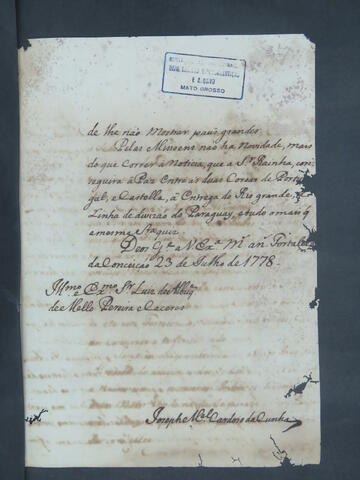 MATO GROSSO
de lhe não mostrar, mais grandes
Pelas Missoens não ha Novidade, mais
do que correr a Noticia, que a Sr.ª Rainha, con,,
seguira à Paz entre as duas Coroas de Portu
gal, e Castella, à entrega do Rio grande,
Linha de divizão do Paraguay, e tudo o mais q̃
a mesma Sr.ª quiz.
Deos G.de a V. Ex.ª M.s an.s Fortaleza
da Conceição 23 de Julho de 1778.
Illmo e Exmo Sr Luiz de Albuq.
de Mello Pereira e Caceres
Joseph M.el Cardoso da Cunha